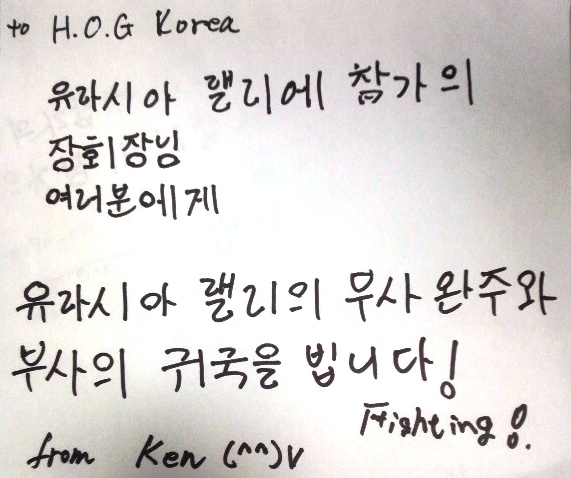 to H.O.G Korea
유라시아 랠리에 참가의
장회장님
여러분에게
유라시아 랠리의 무사 완주와
부사의 귀국을 빕니다!
Fighting!
from Ken (^^)V